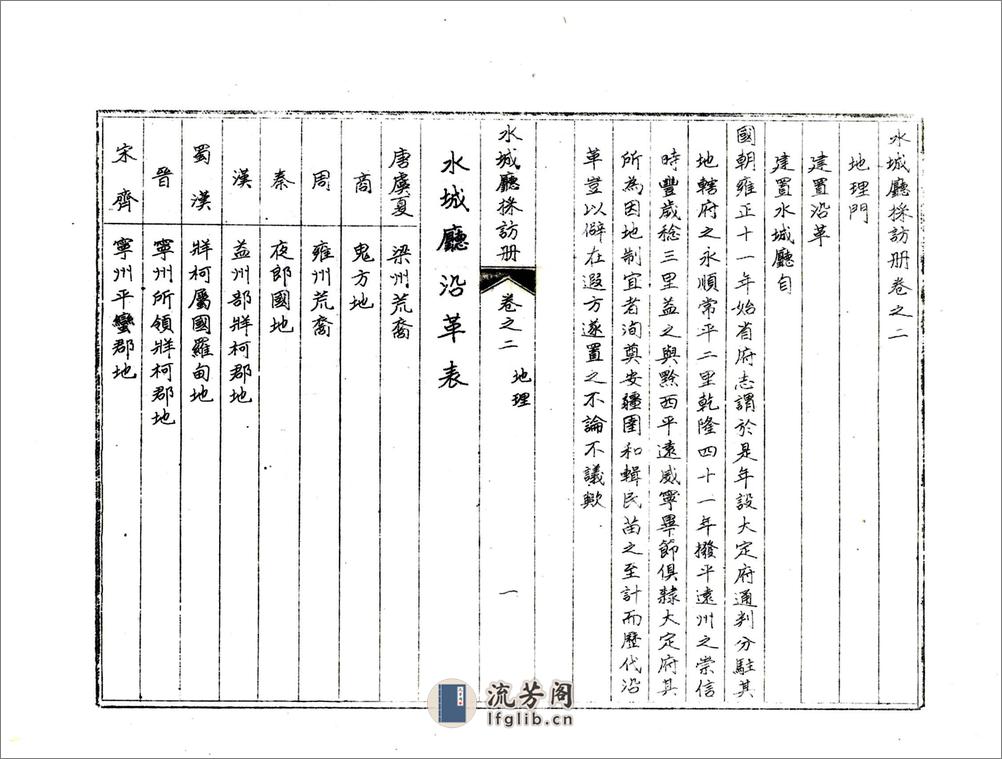 水城廳採訪册卷之二
地理門
建置沿革
建置水城廳自
國朝雍正十一年始省府志謂於是年設大定府通判分駐其
地轄府之永順常平二里乾隆四十一年撥平遠州之崇信
時豐歲稔三里益之與黔西平遠威寧畢節俱隸大定府其
所為因地制宜者洵奠安疆圉和輯民苗之至計而歷代沿
革豈以僻在遐方遂置之不論不議歟
水城廳採訪册
卷之二
地理
一
水城廳沿革表
唐虞夏 梁州荒裔
商 鬼方地
周 雍州荒裔
秦 夜郎國地
漢 益州部牂柯郡地
蜀漢 牂柯屬國羅甸地
晉 寧州所領牂柯郡地
宋齊 寧州平蠻郡地
流芳阁
lfglib.cn